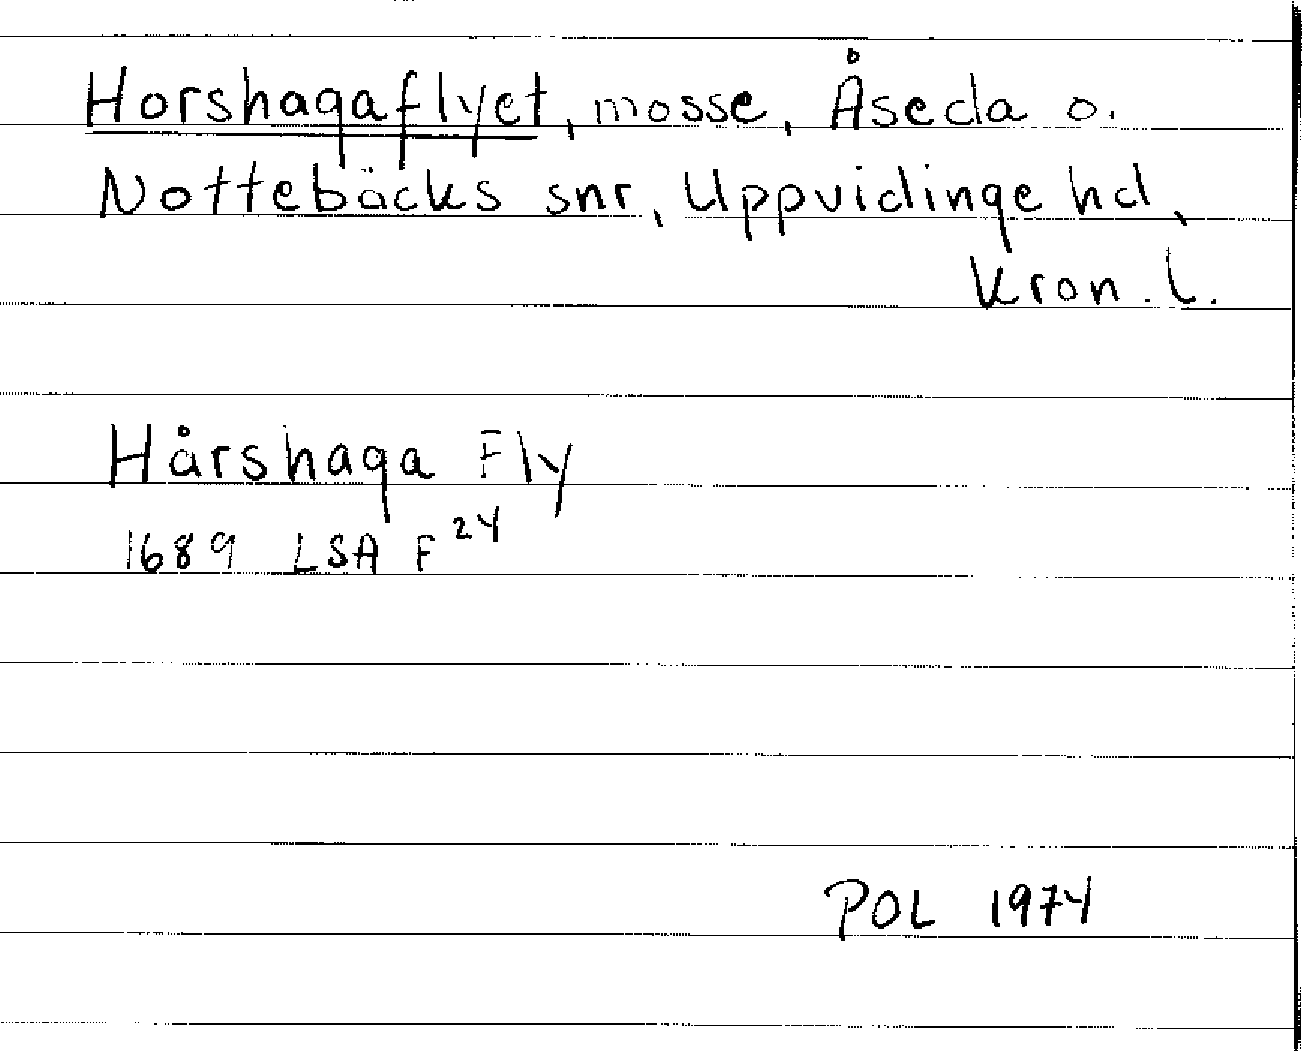 Horshagaflyet, mosse, Åseda o.
Nottebäcks snr, Uppvidinge hd,
Kron. l.
Hårshaga Fly
1689 LSA F 24
POL 1974